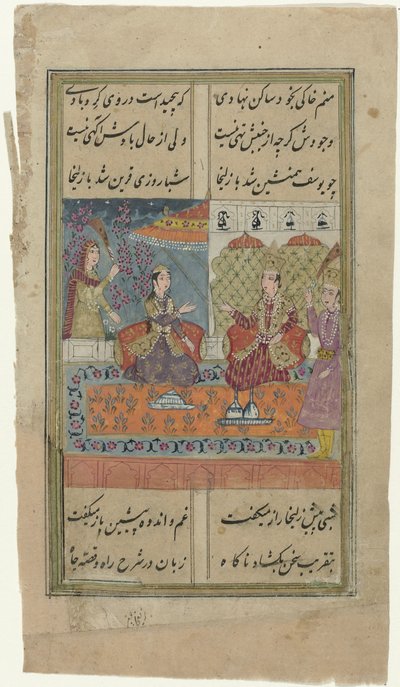 منم خاکی بخود ساکن نهادی که پیچید است در وی کرد بادی
وجودش کرچه از جنبش تهی نیست ولی از حال بادش آکهی نیست
چو یوسف همنشین شد با زلیخا شبا روزی قرین شد با زلیخا
شبی پیش زلیخا راز میکفت غم و اندوه پیشین باز میکفت
بتقریب سخن بکشاد ناکاه زبان در شرح راه و قصه چاه